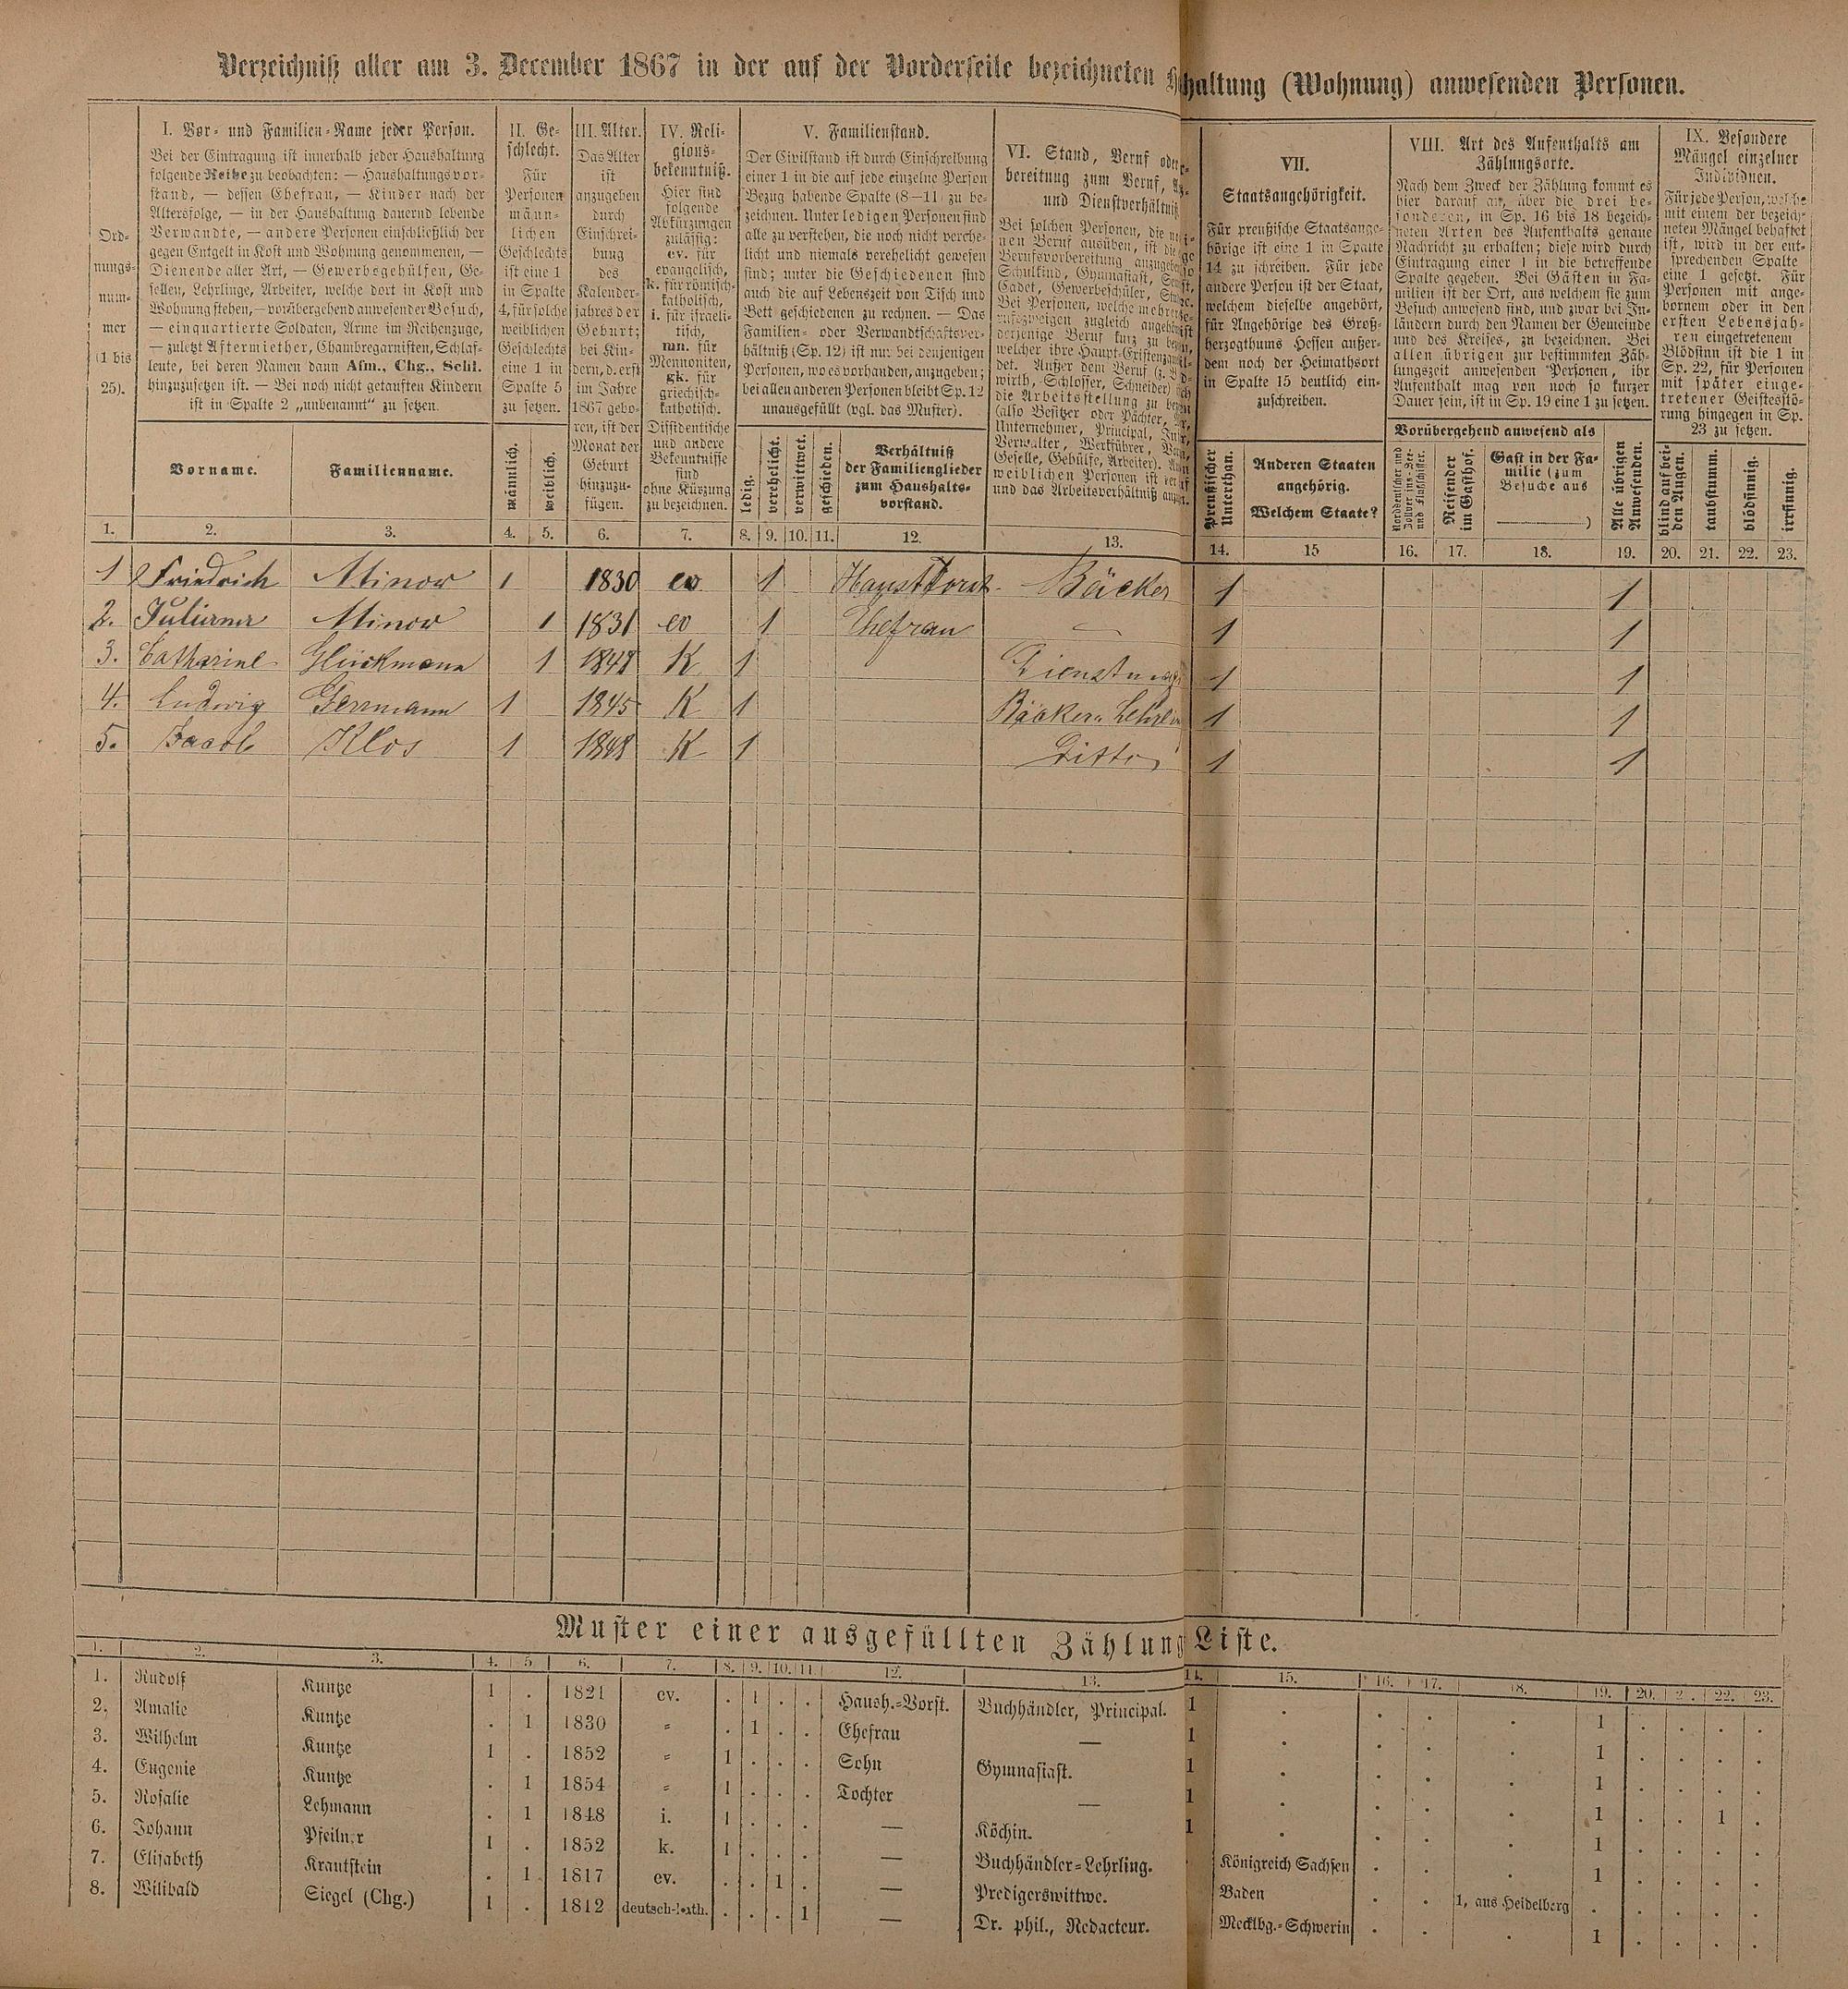 Verzeichniß aller am 3. December 1867 in der auf der Vorderseite bezeichneten haltung (Wohnung) anwesenden Personen.
Ord-
nungs-
num-
mer
(1 bis
25).
I. Vor- und Familien-Name jeder Person.
Bei der Eintragung ist innerhalb jeder Haushaltung
folgende Reihe zu beobachten: — Haushaltungsvor-
stand, — dessen Ehefrau, — Kinder nach der
Altersfolge, — in der Haushaltung dauernd lebende
Verwandte, — andere Personen einschließlich der
gegen Entgelt in Kost und Wohnung genommenen, —
Dienende aller Art, — Gewerbegehülfen, Ge-
sellen, Lehrlinge, Arbeiter, welche dort in Kost und
Wohnung stehen, — vorübergehend anwesender Besuch,
— einquartierte Soldaten, Arme im Reihenzuge,
— zuletzt Aftermiether, Chambregarnisten, Schlaf-
leute, bei deren Namen dann Afm., Chg., Schl.
hinzuzusetzen ist. — Bei noch nicht getauften Kindern
ist in Spalte 2 „unbenannt" zu setzen.
Vorname.
Familienname.
II. Ge-
schlecht.
Für
Personen
männ-
lichen
Geschlechts
ist eine 1
in Spalte
4, für solche
weiblichen
Geschlechts
eine 1 in
Spalte 5
zu setzen.
männlich.
weiblich.
III. Alter.
Das Alter
ist
anzugeben
durch
Einschrei-
bung
des
Kalender-
jahres der
Geburt;
bei Kin-
dern, d. erst
im Jahre
1867 gebo-
ren, ist der
Monat der
Geburt
hinzuzu-
fügen.
IV. Reli-
gions-
bekenntniß.
Hier sind
folgende
Abkürzungen
zulässig:
ev. für
evangelisch,
k. für römisch-
katholisch,
i. für israeli-
tisch,
mn. für
Mennoniten,
gk. für
griechisch-
katholisch.
Dissidentische
und andere
Bekenntnisse
sind
ohne Kürzung
zu bezeichnen.
V. Familienstand.
Der Civilstand ist durch Einschreibung
einer 1 in die auf jede einzelne Person
Bezug habende Spalte (8—11) zu be-
zeichnen. Unter ledigen Personen sind
alle zu verstehen, die noch nicht verehe-
licht und niemals verehelicht gewesen
sind; unter die Geschiedenen sind
auch die auf Lebenszeit von Tisch und
Bett geschiedenen zu rechnen. — Das
Familien- oder Verwandtschaftsver-
hältniß (Sp. 12) ist nur bei denjenigen
Personen, wo es vorhanden, anzugeben;
bei allen anderen Personen bleibt Sp. 12
unausgefüllt (vgl. das Muster).
ledig.
verehelicht.
verwittwet.
geschieden.
Verhältniß
der Familienglieder
zum Haushalts-
vorstand.
VI. Stand, Beruf oder
bereitung zum Beruf,
und Dienstverhältniß
Bei solchen Personen, die
nen Beruf ausüben, ist die
Berufsvorbereitung
Schulkind, Gymnasiast,
Cadet, Gewerbeschüler,
Bei Personen, welche mehren
zugleich
derjenige Beruf kurz zu
welcher ihre Haupt-
det. Außer dem Beruf (z. B.
wirth, Schlosser, Schneider)
die Arbeitsstellung zu
(also Besitzer oder Pächter,
Unternehmer, Principal,
Verwalter, Werkführer,
Geselle, Gehülfe, Arbeiter).
weiblichen Personen ist
und das Arbeitsverhältniß
VII.
Staatsangehörigkeit.
Für preußische Staatsange-
hörige ist eine 1 in Spalte
14 zu schreiben. Für jede
andere Person ist der Staat,
welchem dieselbe angehört,
für Angehörige des Groß-
herzogthums Hessen außer-
dem noch der Heimathsort
in Spalte 15 deutlich ein-
zuschreiben.
Preußischer
Unterthan.
Anderen Staaten
angehörig.
Welchem Staate?
VIII. Art des Aufenthalts am
Zählungsorte.
Nach dem Zweck der Zählung kommt es
hier darauf an, über die drei be-
sonderen, in Sp. 16 bis 18 bezeich-
neten Arten des Aufenthalts genaue
Nachricht zu erhalten; diese wird durch
Eintragung einer 1 in die betreffende
Spalte gegeben. Bei Gästen in Fa-
milien ist der Ort, aus welchem sie zum
Besuch anwesend sind, und zwar bei In-
ländern durch den Namen der Gemeinde
und des Kreises, zu bezeichnen. Bei
allen übrigen zur bestimmten Zäh-
lungszeit anwesenden Personen, ihr
Aufenthalt mag von noch so kurzer
Dauer sein, ist in Sp. 19 eine 1 zu setzen.
Vorübergehend anwesend als
Norddeutscher und
Zollvereins-See-
und Flußschiffer.
Reisender
im Gasthof.
Gast in der Fa-
milie (zum
Besuche aus
)
Alle übrigen
Anwesenden.
IX. Besondere
Mängel einzelner
Individuen.
Für jede Person, welche
mit einem der bezeich-
neten Mängel behaftet
ist, wird in der ent-
sprechenden Spalte
eine 1 gesetzt. Für
Personen mit ange-
bornem oder in den
ersten Lebensjah-
ren eingetretenem
Blödsinn ist die 1 in
Sp. 22, für Personen
mit später einge-
tretener Geistesstö-
rung hingegen in Sp.
23 zu setzen.
blind auf bei-
den Augen.
taubstumm.
blödsinnig.
irrsinnig.
1. 2. 3. 4. 5. 6. 7. 8. 9. 10. 11. 12. 13. 14. 15 16. 17. 18. 19. 20. 21. 22. 23.
1 Friedrich Minor 1 1830 ev 1 Bäcker 1 1
2. Minor 1 1831 ev 1 Ehefrau — 1 1
3. Catharine Glückmann 1 K 1 1 1
4. Ludwig Germann 1 1845 K 1 1 1
5. Jacob Klos 1 1848 K 1 Ditto 1 1
Muster einer ausgefüllten Zählung Liste.
1. 2. 3. 4. 5. 6. 7. 8. 9. 10. 11. 12. 13. 14. 15. 16. 17. 18. 19. 20. 2. 22. 23.
1. Rudolf Kuntze 1 . 1821 ev. . 1 . . Haush.-Vorst. Buchhändler, Principal. 1 . . . . 1 . . . .
2. Amalie Kuntze . 1 1830 „ . 1 . . Ehefrau — 1 . . . . 1 . . . .
3. Wilhelm Kuntze 1 . 1852 „ 1 . . . Sohn Gymnasiast. 1 . . . . 1 . . . .
4. Eugenie Kuntze . 1 1854 „ 1 . . . Tochter — 1 . . . . 1 . . 1 .
5. Rosalie Lehmann . 1 1848 i. 1 . . . — Köchin. 1 . . . . 1 . . . .
6. Johann Pfeilner 1 . 1852 k. 1 . . . — Buchhändler-Lehrling. . Königreich Sachsen . . . 1 . . . .
7. Elisabeth Krautstein . 1 1817 ev. . . 1 . — Predigerswittwe. Baden . . 1, aus Heidelberg . . . . .
8. Wilibald Siegel (Chg.) 1 . 1812 deutsch-kath. . . . 1 — Dr. phil., Redacteur. Mecklbg.-Schwerin . . . 1 . . . .